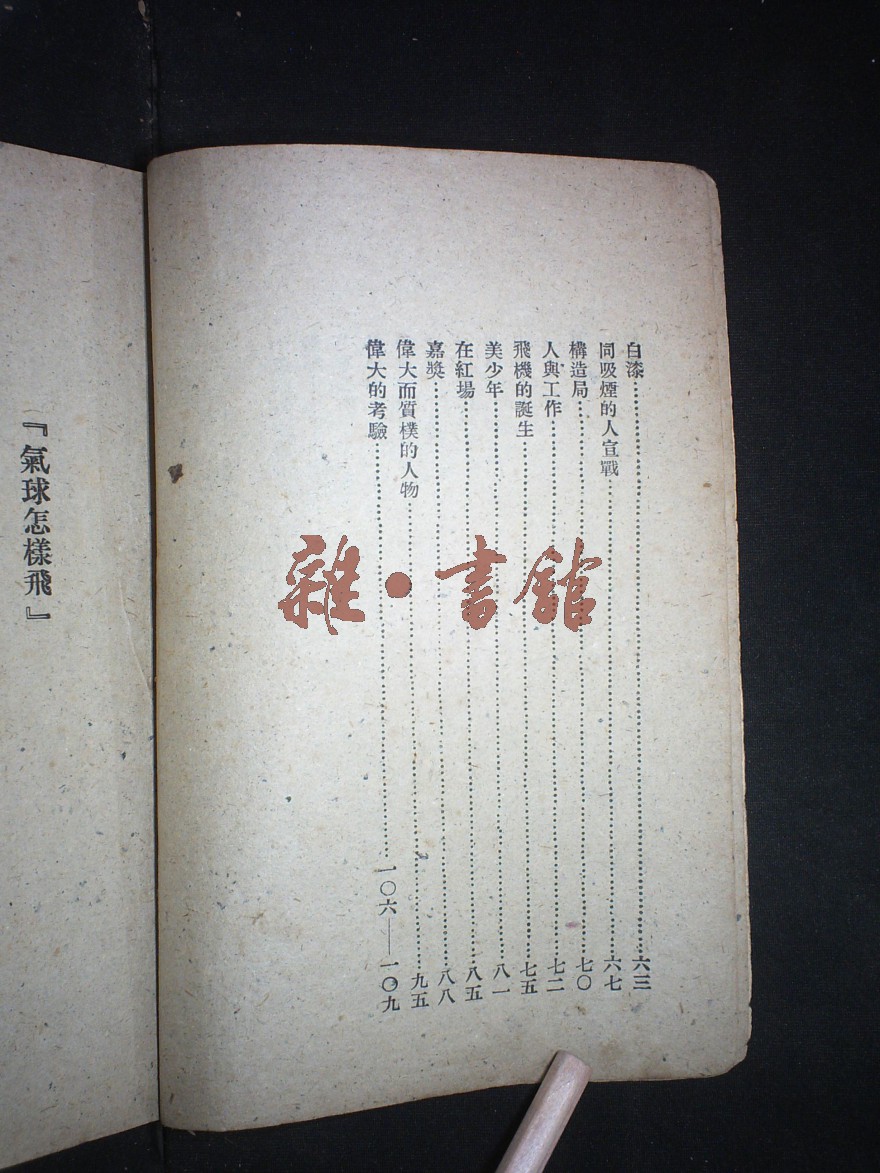 白漆……六三
同吸煙的人宣戰……六七
構造局……七〇
人與工作……七二
飛機的誕生……七五
美少年……八一
在紅場……八五
嘉獎……八八
偉大而質樸的人物……九五
偉大的考驗……一〇六——一〇九
『氣球怎樣飛』
雜·書館